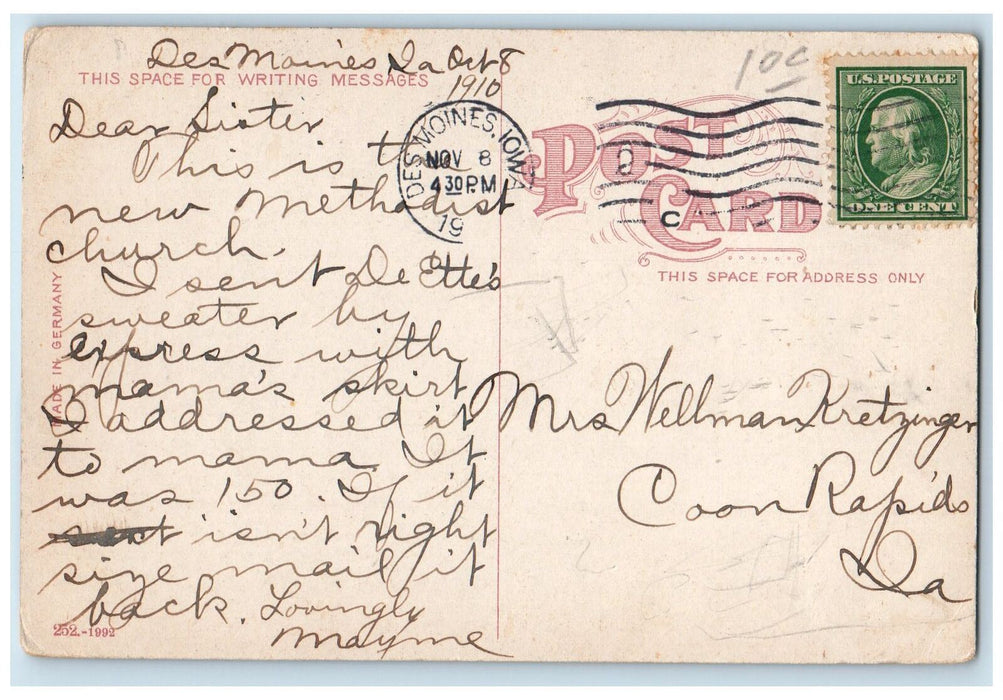 Des Moines Ia Oct 8
1910
THIS SPACE FOR WRITING MESSAGES
Dear Sister
This is the
new Methodist
church.
I sent De Ette's
sweater by
express with
mama's skirt
I addressed it
to mama. It
was 1.50. If it
isn't right
size mail it
back. Lovingly
Mayme
252.-1992
MADE IN GERMANY
DES MOINES, IOWA
NOV 8
4 30 PM
19
C
10¢
U.S. POSTAGE
ONE CENT
POST
CARD
THIS SPACE FOR ADDRESS ONLY
Mrs Wellman Kretzinger
Coon Rapids
Ia